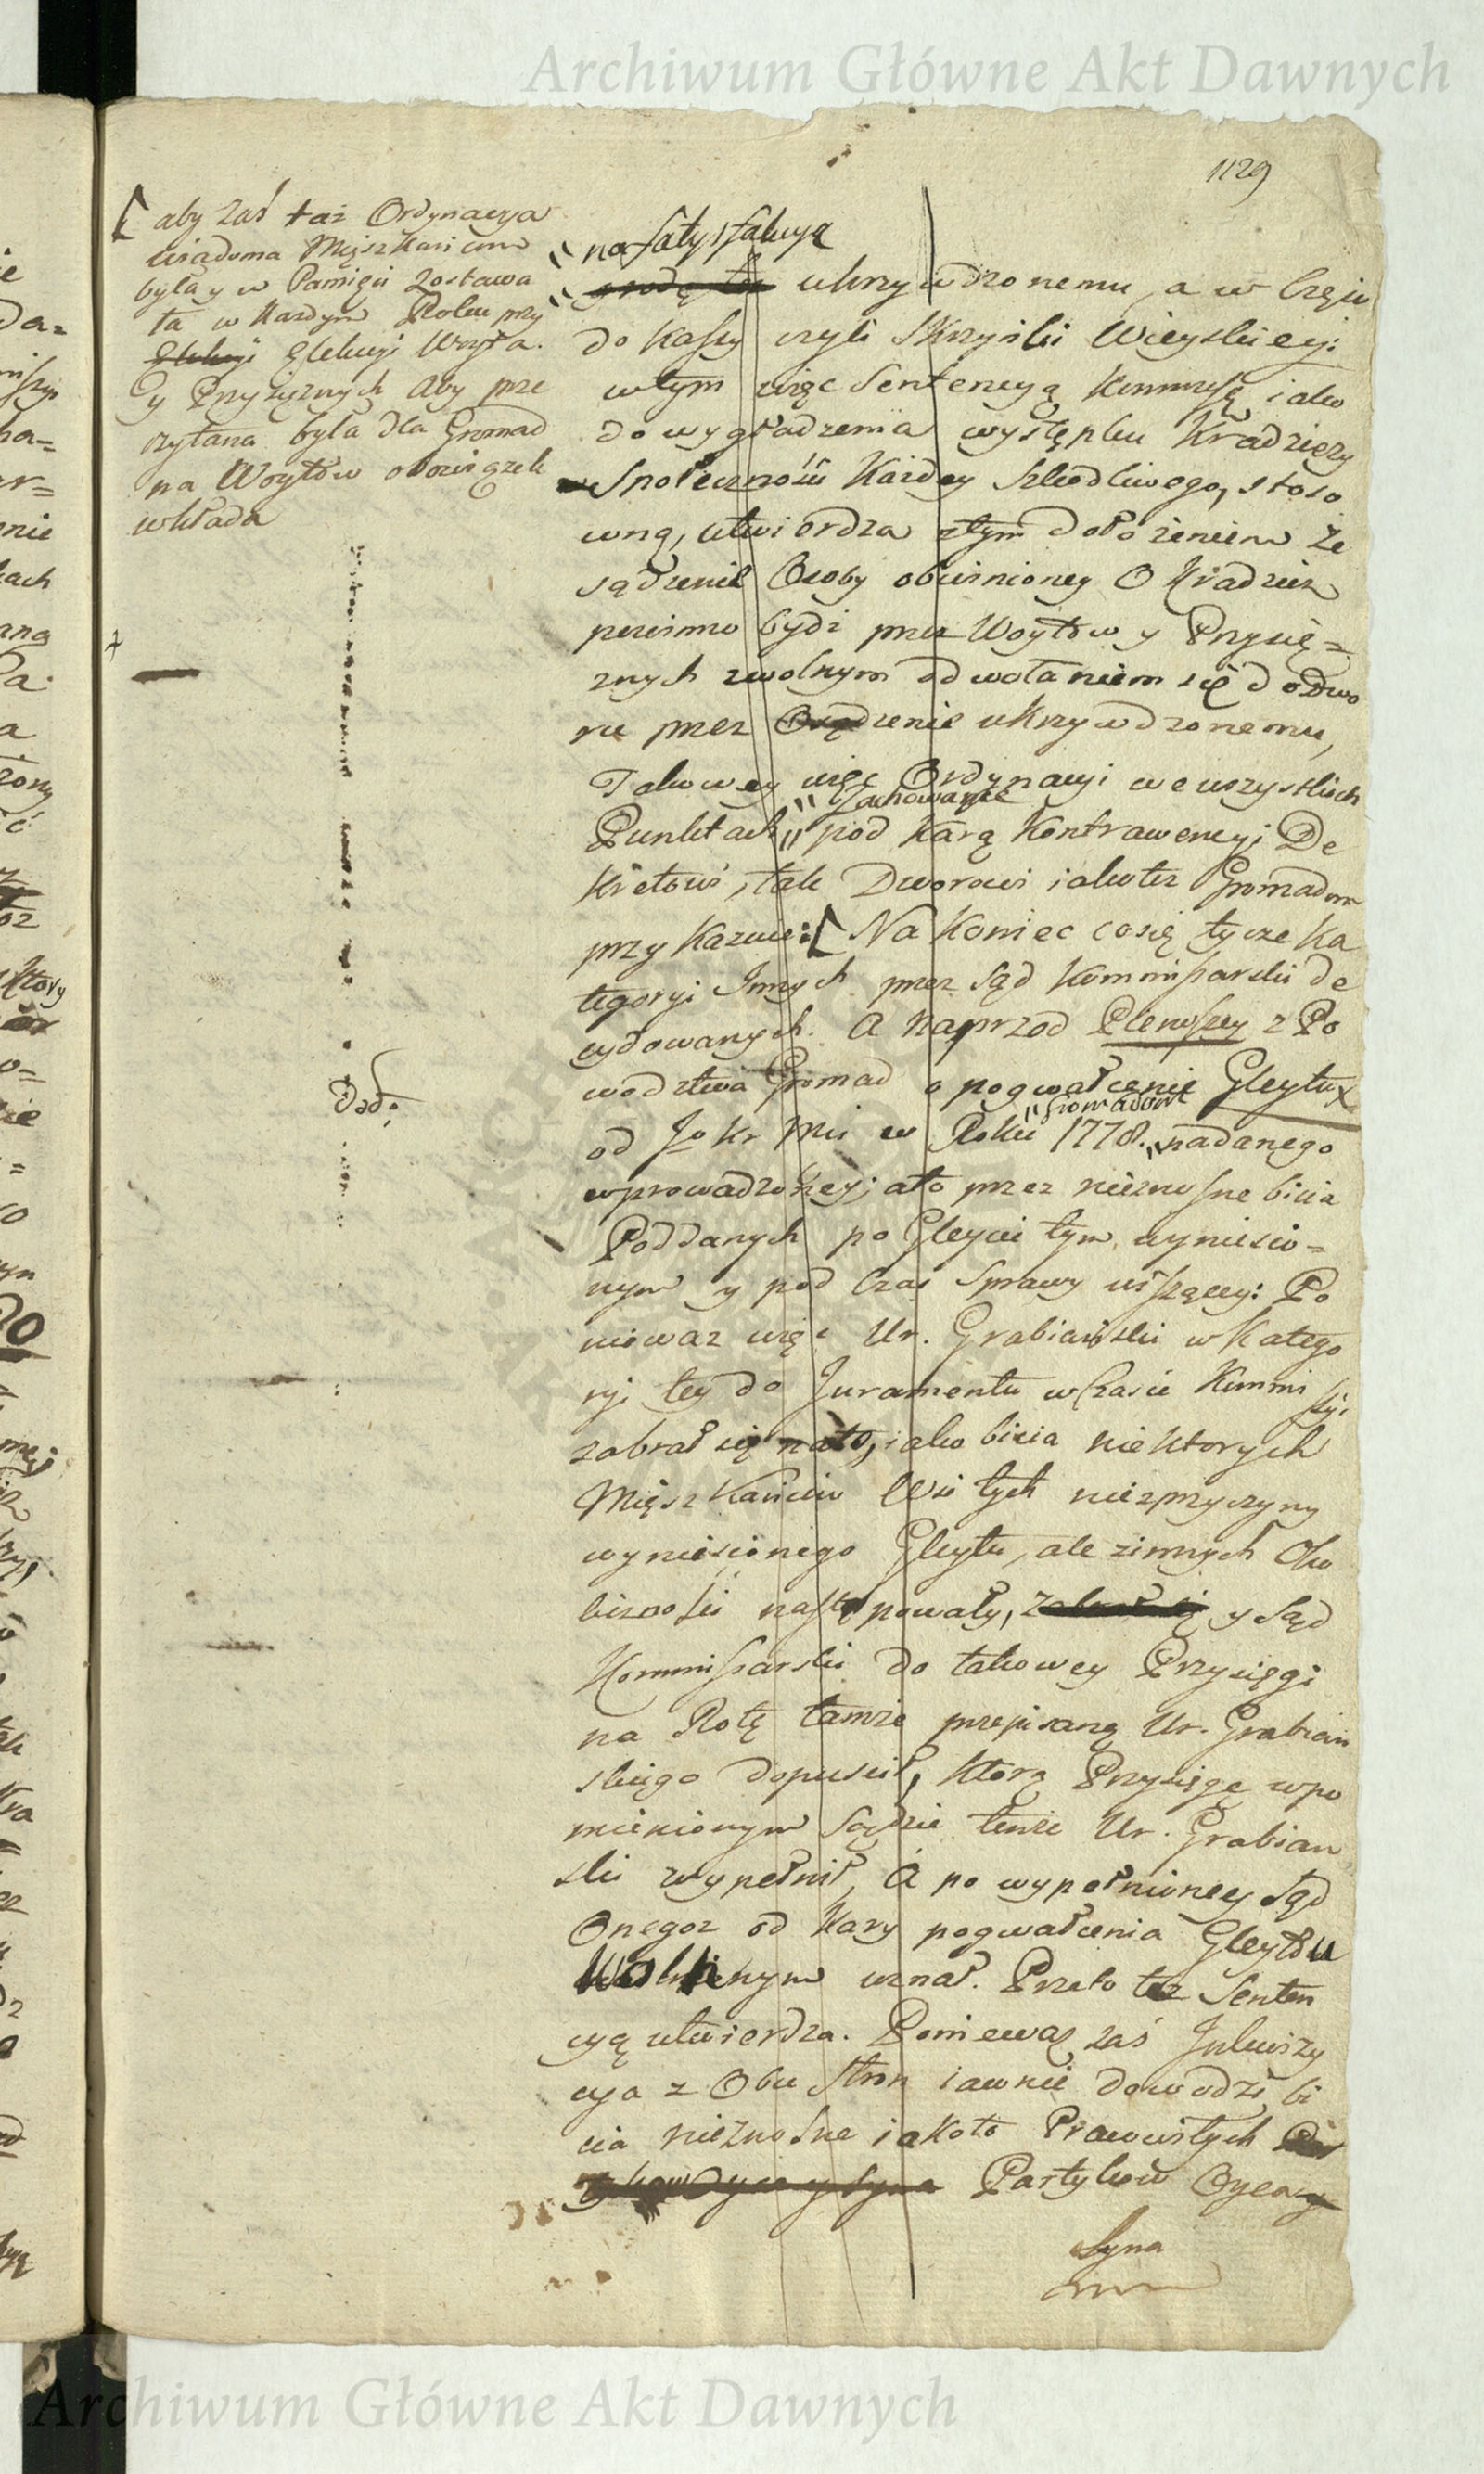 Archiwum Główne Akt Dawnych
1129
aby zaś taż Ordynacya
wiadoma Mięszkańcom
była y w Pamięci zostawa
ła w każdym Roku przy
Elekcyi Elekcyi Woyta
y Przysiężnych aby prze
czytana była dla Gromad
na Woytów obowiązek
wkłada
Dad:
na satysfakcyą
ukrzywdzonemu, a w Częsci
do Kassy czyli Skrzynki Wieyskiey:
wtym więc Sentencyą Kommissę iako
do wygładzenia występku Kradzieży
Społeczności Każdey szkodliwego, stoso
wną, utwierdza ztym dołożeniem że
sądzenie Osoby obwinioney O Kradzież
powinno bydź przez Woytów y Przysię=
żnych zwolnym odwołaniem się do Dwo
ru przez Osądzenie ukrzywdzonemu,
Takowey więc Ordynacyi we wszystkich
Punktach " zachowanie " pod Karą Kontrawencyi De
kretowi, tak Dworowi iako też Gromadom
przykazuie: [ Na Koniec co się tycze Ka
tegoryi Innych przez Sąd Kommissarski de
cydowanych. A Naprzod Pierwszey z Po
wodztwa Gromad o pogwałcenie Gleytu x
od Jo Kr Mci w Roku 1778. " Gromadom " nadanego
wprowadzoney; a to przez nieznosne bicia
Poddanych po Gleycie tym wyniesio=
nym y pod Czas Sprawy wiszącey: Po
nieważ więc Ur. Grabiański w Katego
ryi tey do Juramentu w Czasie Kommi
ssyi
zabrał się na to, iako bicia niektorych
Mięszkańców Wsi tych nie z przyczyny
wyniesionego Gleytu, ale z innych Oko
liczności następowały, y Sąd
Kommissarski do takowey Przysięgi
na Rotę tamże przepisaną Ur. Grabian
skiego dopuscił, ktorą Przysięgę wpo
mienionym Sądzie tenże Ur. Grabian
ski wypełnił, A po wypełnioney Sąd
Onegoż od Kary pogwałcenia Gleytu
Wolnym uznał. Przeto też Senten
cyą utwierdza. Ponieważ zaś Inkwizy
cya z Obu Stron iawnie dowodzi bi
cia nieznosne iakoto Prawowitych
Partyków Oyca y
Syna
Archiwum Główne Akt Dawnych